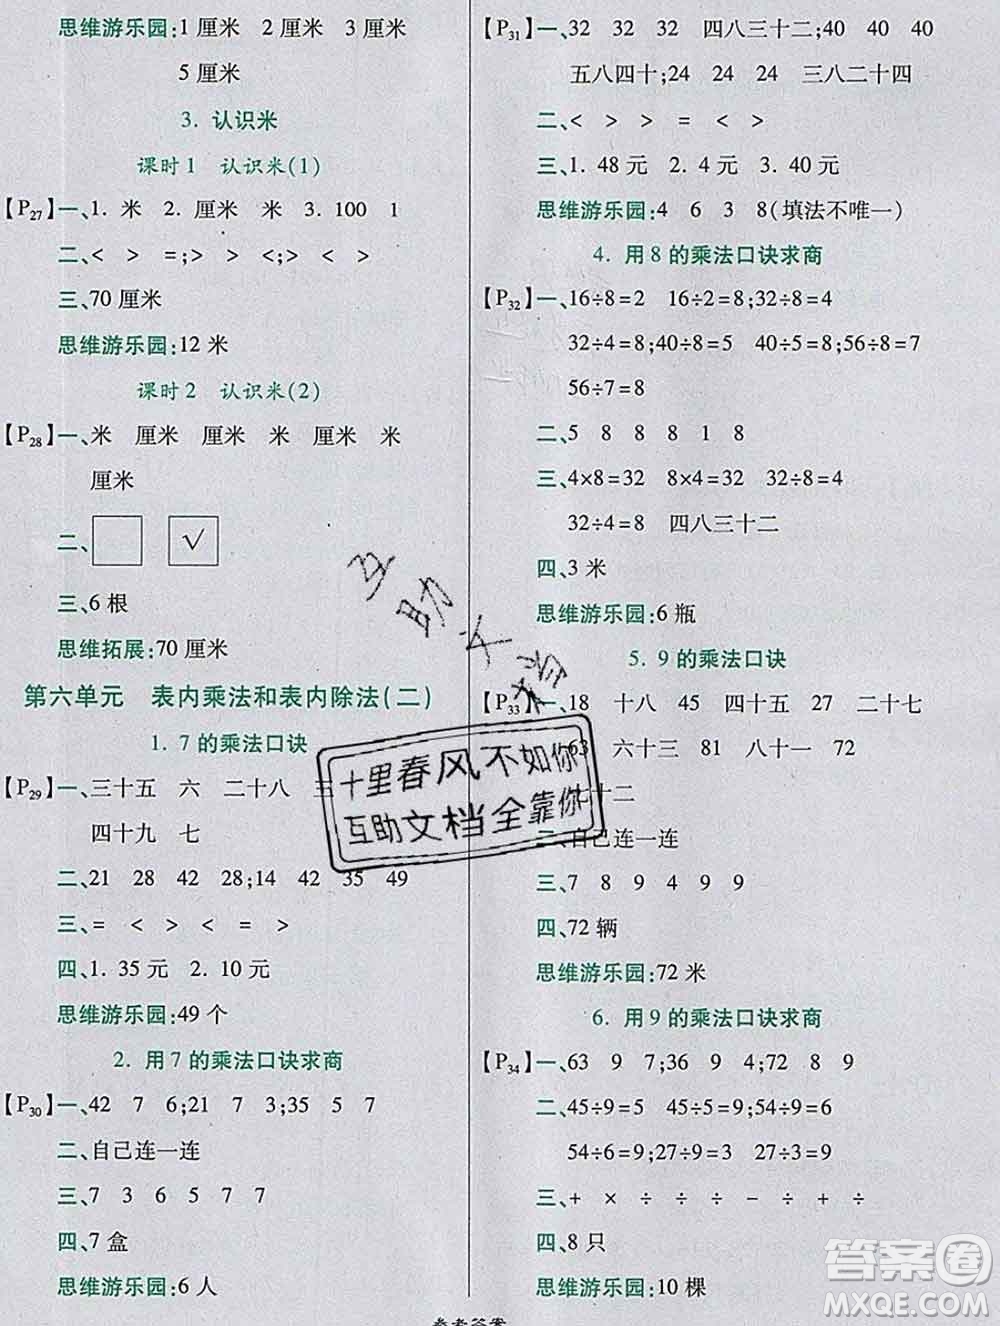 思维游乐园:1厘米 2厘米 3厘米
5厘米
3. 认识米
课时1 认识米(1)
【P27】一、1. 米 2. 厘米 米 3. 100 1
二、< > > =;> > <;< > <
三、70厘米
思维游乐园:12米
课时2 认识米(2)
【P28】一、米 厘米 厘米 米 厘米 米
厘米
二、 √
三、6根
思维拓展:70厘米
第六单元 表内乘法和表内除法(二)
1. 7的乘法口诀
【P29】三十五 六 二十八 五
四十九 七
二、21 28 42 28;14 42 35 49
三、= < > < = >
四、1. 35元 2. 10元
思维游乐园:49个
2. 用7的乘法口诀求商
【P30】一、42 7 6;21 7 3;35 5 7
二、自己连一连
三、7 3 6 5 7 7
四、7盒
思维游乐园:6人
【P31】一、32 32 32 四八三十二;40 40 40
五八四十;24 24 24 三八二十四
二、< > > = < >
三、1. 48元 2. 4元 3. 40元
思维游乐园:4 6 3 8(填法不唯一)
4. 用8的乘法口诀求商
【P32】一、16÷8=2 16÷2=8;32÷8=4
32÷4=8;40÷8=5 40÷5=8;56÷8=7
56÷7=8
二、5 8 8 8 1 8
三、4×8=32 8×4=32 32÷8=4
32÷4=8 四八三十二
四、3米
思维游乐园:6瓶
5. 9的乘法口诀
【P33】一、18 十八 45 四十五 27 二十七
63 六十三 81 八十一 72
七十二
二、自己连一连
三、7 8 9 4 9 9
四、72辆
思维游乐园:72米
6. 用9的乘法口诀求商
【P34】一、63 9 7;36 9 4;72 8 9
二、45÷9=5 45÷5=9;54÷9=6
54÷6=9;27÷9=3 27÷3=9
三、+ × ÷ ÷ ÷ - ÷ + ÷
四、8只
思维游乐园:10棵
参考答案
互助文档
十里春风不如你
互助文档全靠你
答案圈
MXQE.COM